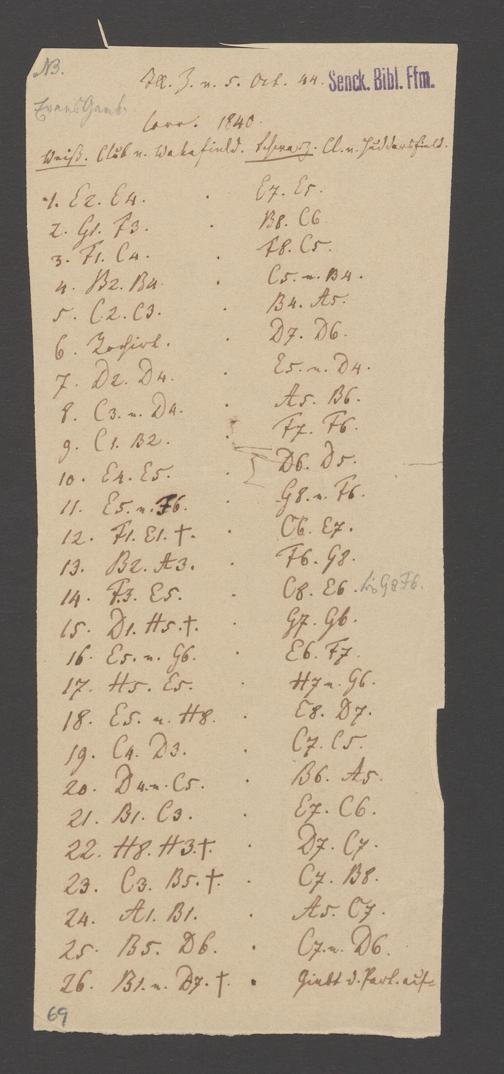 NB.
Fr. Z. v. 5. Oct. 44. Senck. Bibl. Ffm.
Evans Gamb.
Corr. 1840.
Weiß. Club v. Wakefield. Schwarz. Cl. v. Huddersfield.
1. E2. E4. . E7. E5.
2. G1. F3. . B8. C6
3. F1. C4. . F8. C5.
4. B2. B4. . C5. n. B4.
5. C2. C3. . B4. A5.
6. Rochirt. . D7. D6.
7. D2. D4. . E5. n. D4.
8. C3. n. D4. . A5. B6.
9. C1. B2. . F7. F6.
10. E4. E5. . D6. D5.
11. E5. n. F6. . G8. n. F6.
12. F1. E1. †. . C6. E7.
13. B2. A3. . F6. G8.
14. F3. E5. . C8. E6. G8 F6.
15. D1. H5. †. . G7. G6.
16. E5. n. G6. . E6. F7.
17. H5. E5. . H7 n. G6.
18. E5. n. H8. . E8. D7.
19. C4. D3. . C7. C5.
20. D4. n. C5. . B6. A5.
21. B1. C3. . E7. C6.
22. H8. H3. †. . D7. C7.
23. C3. B5. †. . C7. B8.
24. A1. B1. . A5. C7.
25. B5. D6. . C7. n. D6.
26. B1. n. D7. †. . Giebt d. Part. auf.
69